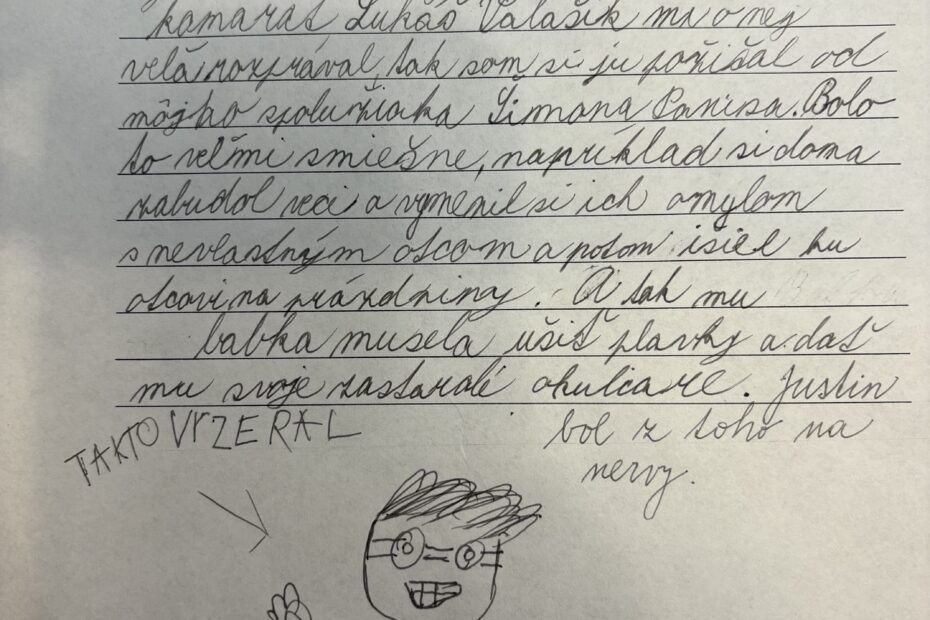 kamarát, Lukáš Valašík mi o nej
veľa rozprával, tak som si ju požičal od
môjho spolužiaka Šimona
. Bolo
to veľmi smiešne, napríklad si doma
zabudol veci a vymenil si ich omylom
s nevlastným otcom a potom išiel ku
otcovi na prázdniny. A tak mu
babka musela ušiť plavky a dať
mu svoje zastaralé okuliare. Justin
bol z toho na
nervy.
TAKTO VYZERAL